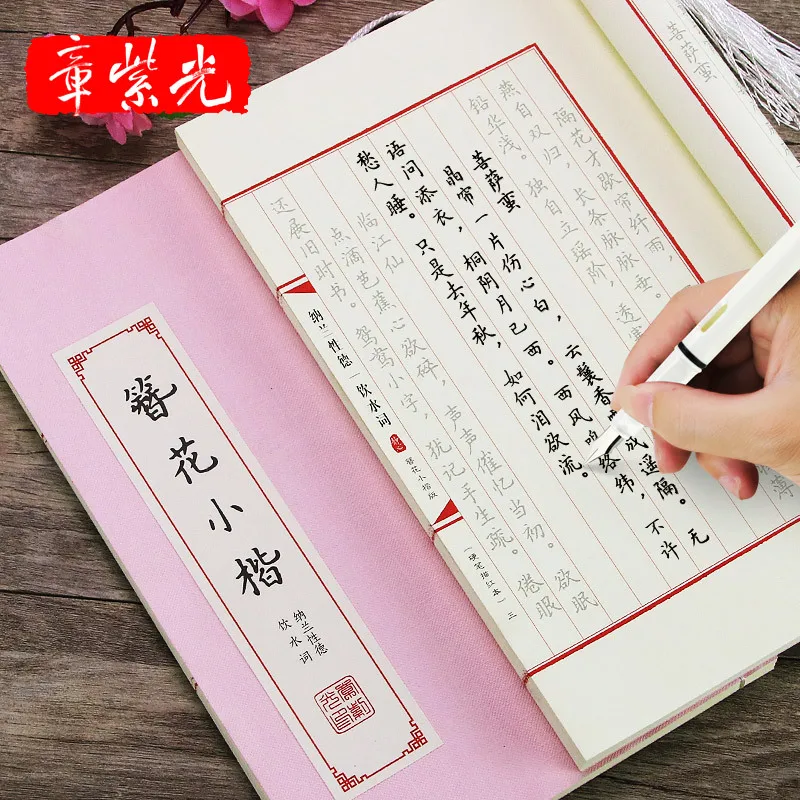 章紫光
菩萨蛮
隔花才歇帘纤雨,
燕自双归,长条脉脉垂。薄
铅华浅。独自立瑶阶,透寒
菩萨蛮
晶帘一片伤心白,云鬟香成遥隔。无
语问添衣,桐阴月已西。西风络纬,不许
愁人睡。只是去年秋,如何泪欲流。
临江仙
点滴芭蕉心欲碎,声声催忆当初。欲眠
还展旧时书。鸳鸯小字,犹记手生疏。倦眼
纳兰性德 饮水词
簪花小楷版
(硬笔描红本)
三
簪花小楷
纳兰性德
饮水词